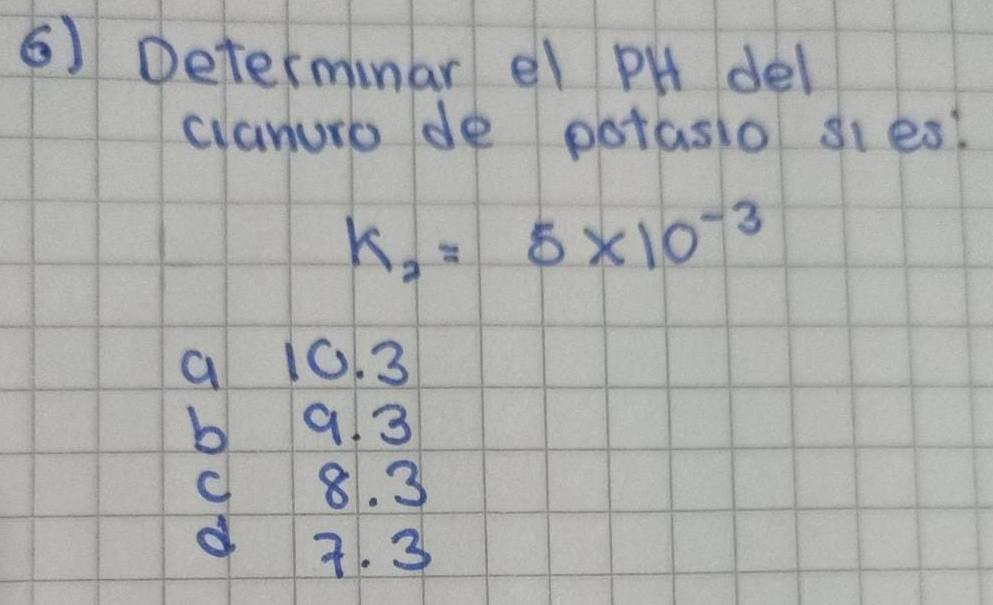 6) Determinar el PH del
cianuro de potasio si es:
K₂ = 5×10⁻³
a 10.3
b 9.3
c 8.3
d 7.3